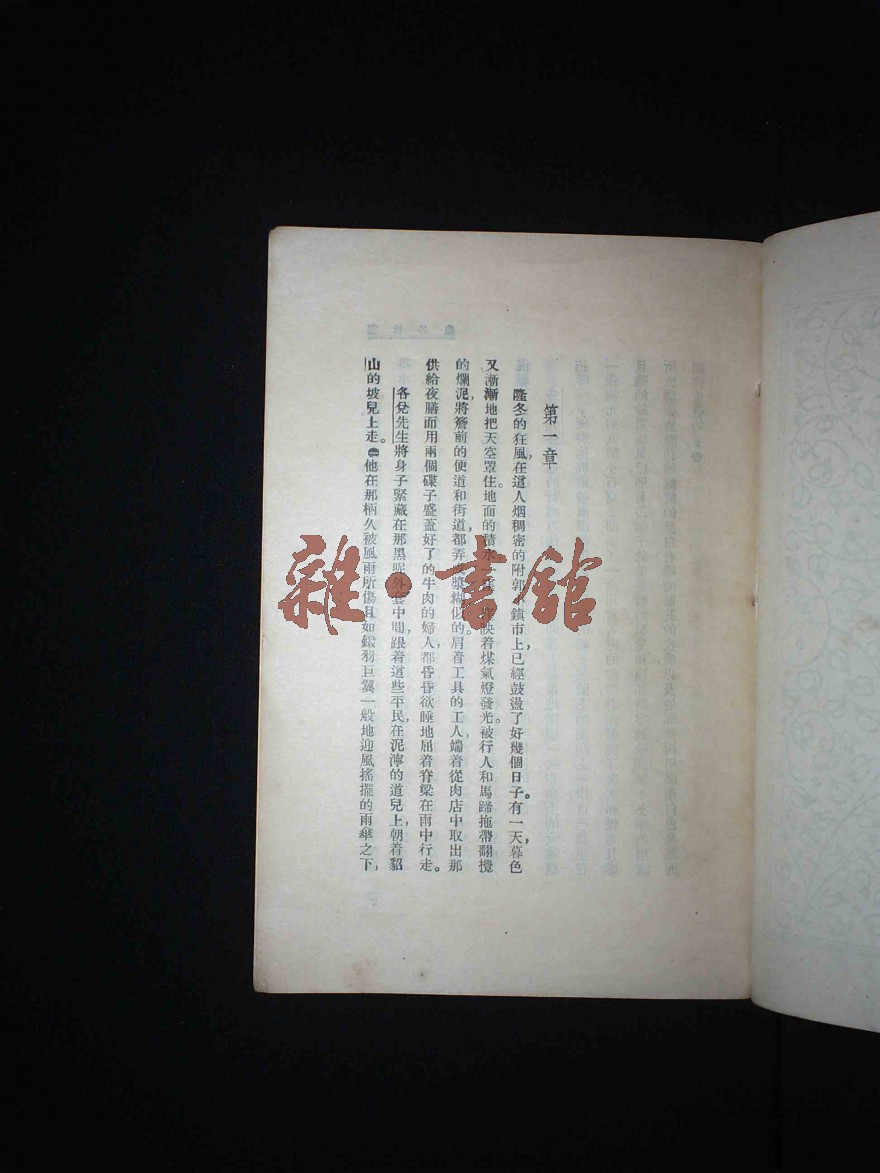 第一章
隆冬的狂風，在這人烟稠密的附郭小鎮市上，已經鼓盪了好幾個日子。有一天，暮色
又漸漸地把天空罩住。地面的積水映着煤氣燈發光。被行人和馬蹄拖帶翻攪
的爛泥，將簷前的便道和街道都弄成漿糊似的。肩着工具的工人，端着從肉店中取出那
供給夜膳而用兩個碟子盛蓋好了的牛肉的婦人，都昏昏欲睡地屈着脊梁在雨中行走。
各兌先生將身子緊藏在那黑呢外套中間，跟着這些平民，在泥濘的道兒上，朝着貂
山的坡兒上走。㊁他在那柄久被風雨所傷且如鎩羽巨翼一般地迎風搖擺的雨傘之下，
雜·書館